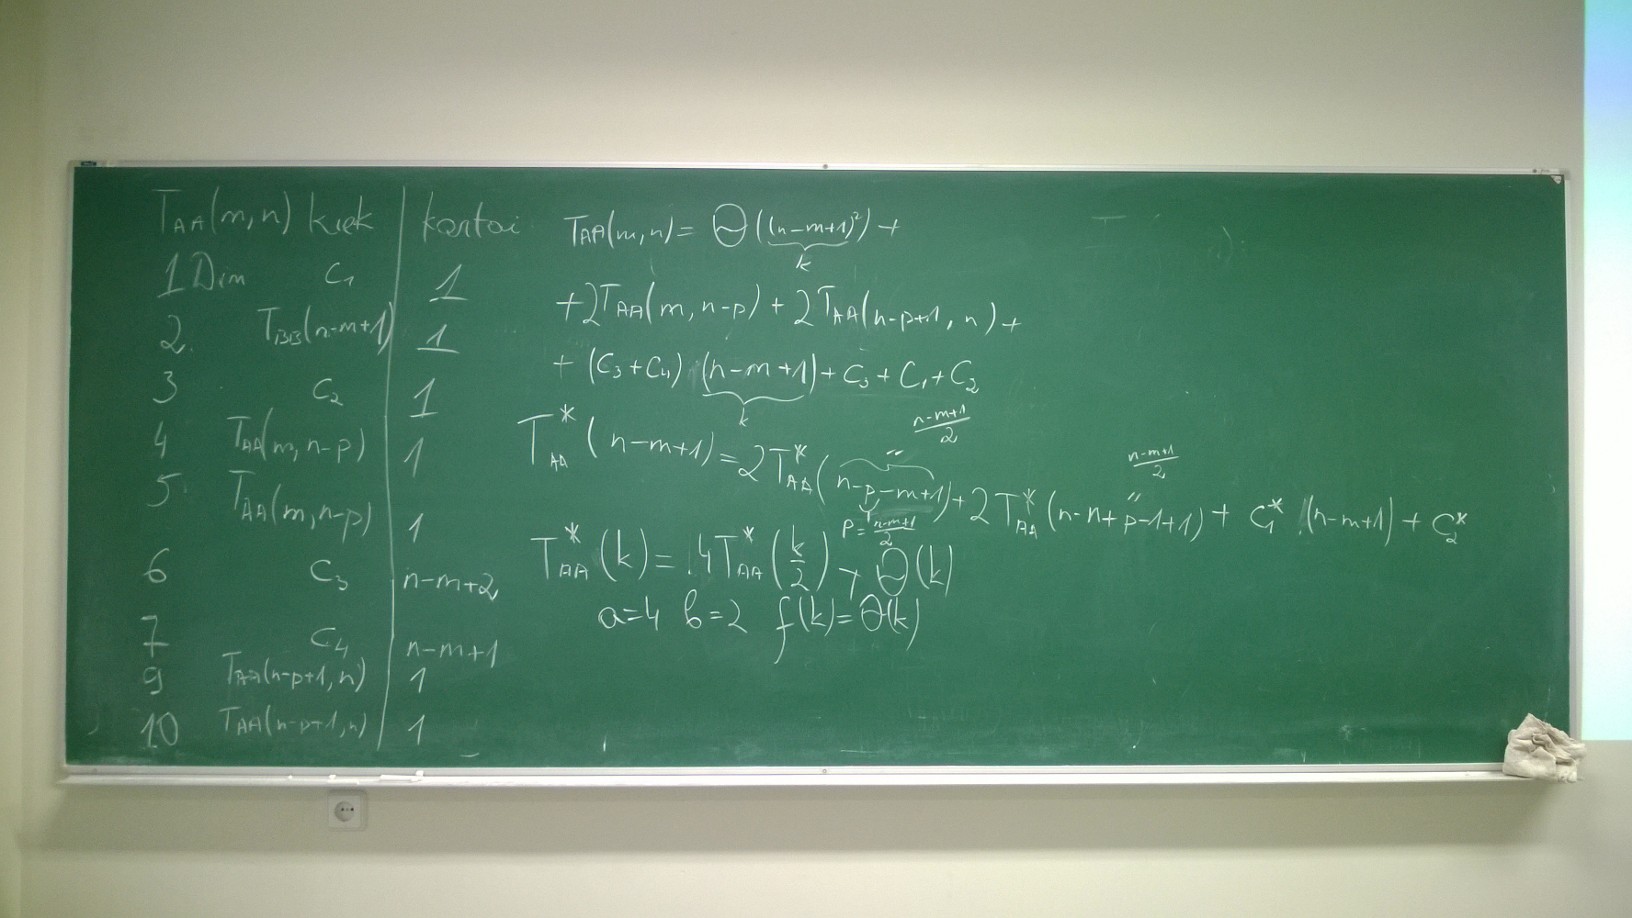 T_AA(m,n) kiek | kartai
1 Dim C₁ | 1
2. T_BB(n-m+1) | 1
3 C₂ | 1
4 T_AA(m,n-p) | 1
5. T_AA(m,n-p) | 1
6 C₃ | n-m+2
7 C₄ | n-m+1
9 T_AA(n-p+1,n) | 1
10 T_AA(n-p+1,n) | 1
T_AA(m,n) = Θ((n-m+1)²) +
k
+2T_AA(m,n-p) + 2T_AA(n-p+1,n) +
+ (C₃+C₄) (n-m+1) + C₃ + C₁ + C₂
k
n-m+1/2
n-m+1/2
T*_AA(n-m+1) = 2T*_AA(n-p-m+1) + 2T*_AA(n-n+p-1+1) + C₁* (n-m+1) + C₂*
p = n-m+1/2
T*_AA(k) = 4T*_AA(k/2) + Θ(k)
a=4 b=2 f(k)=Θ(k)